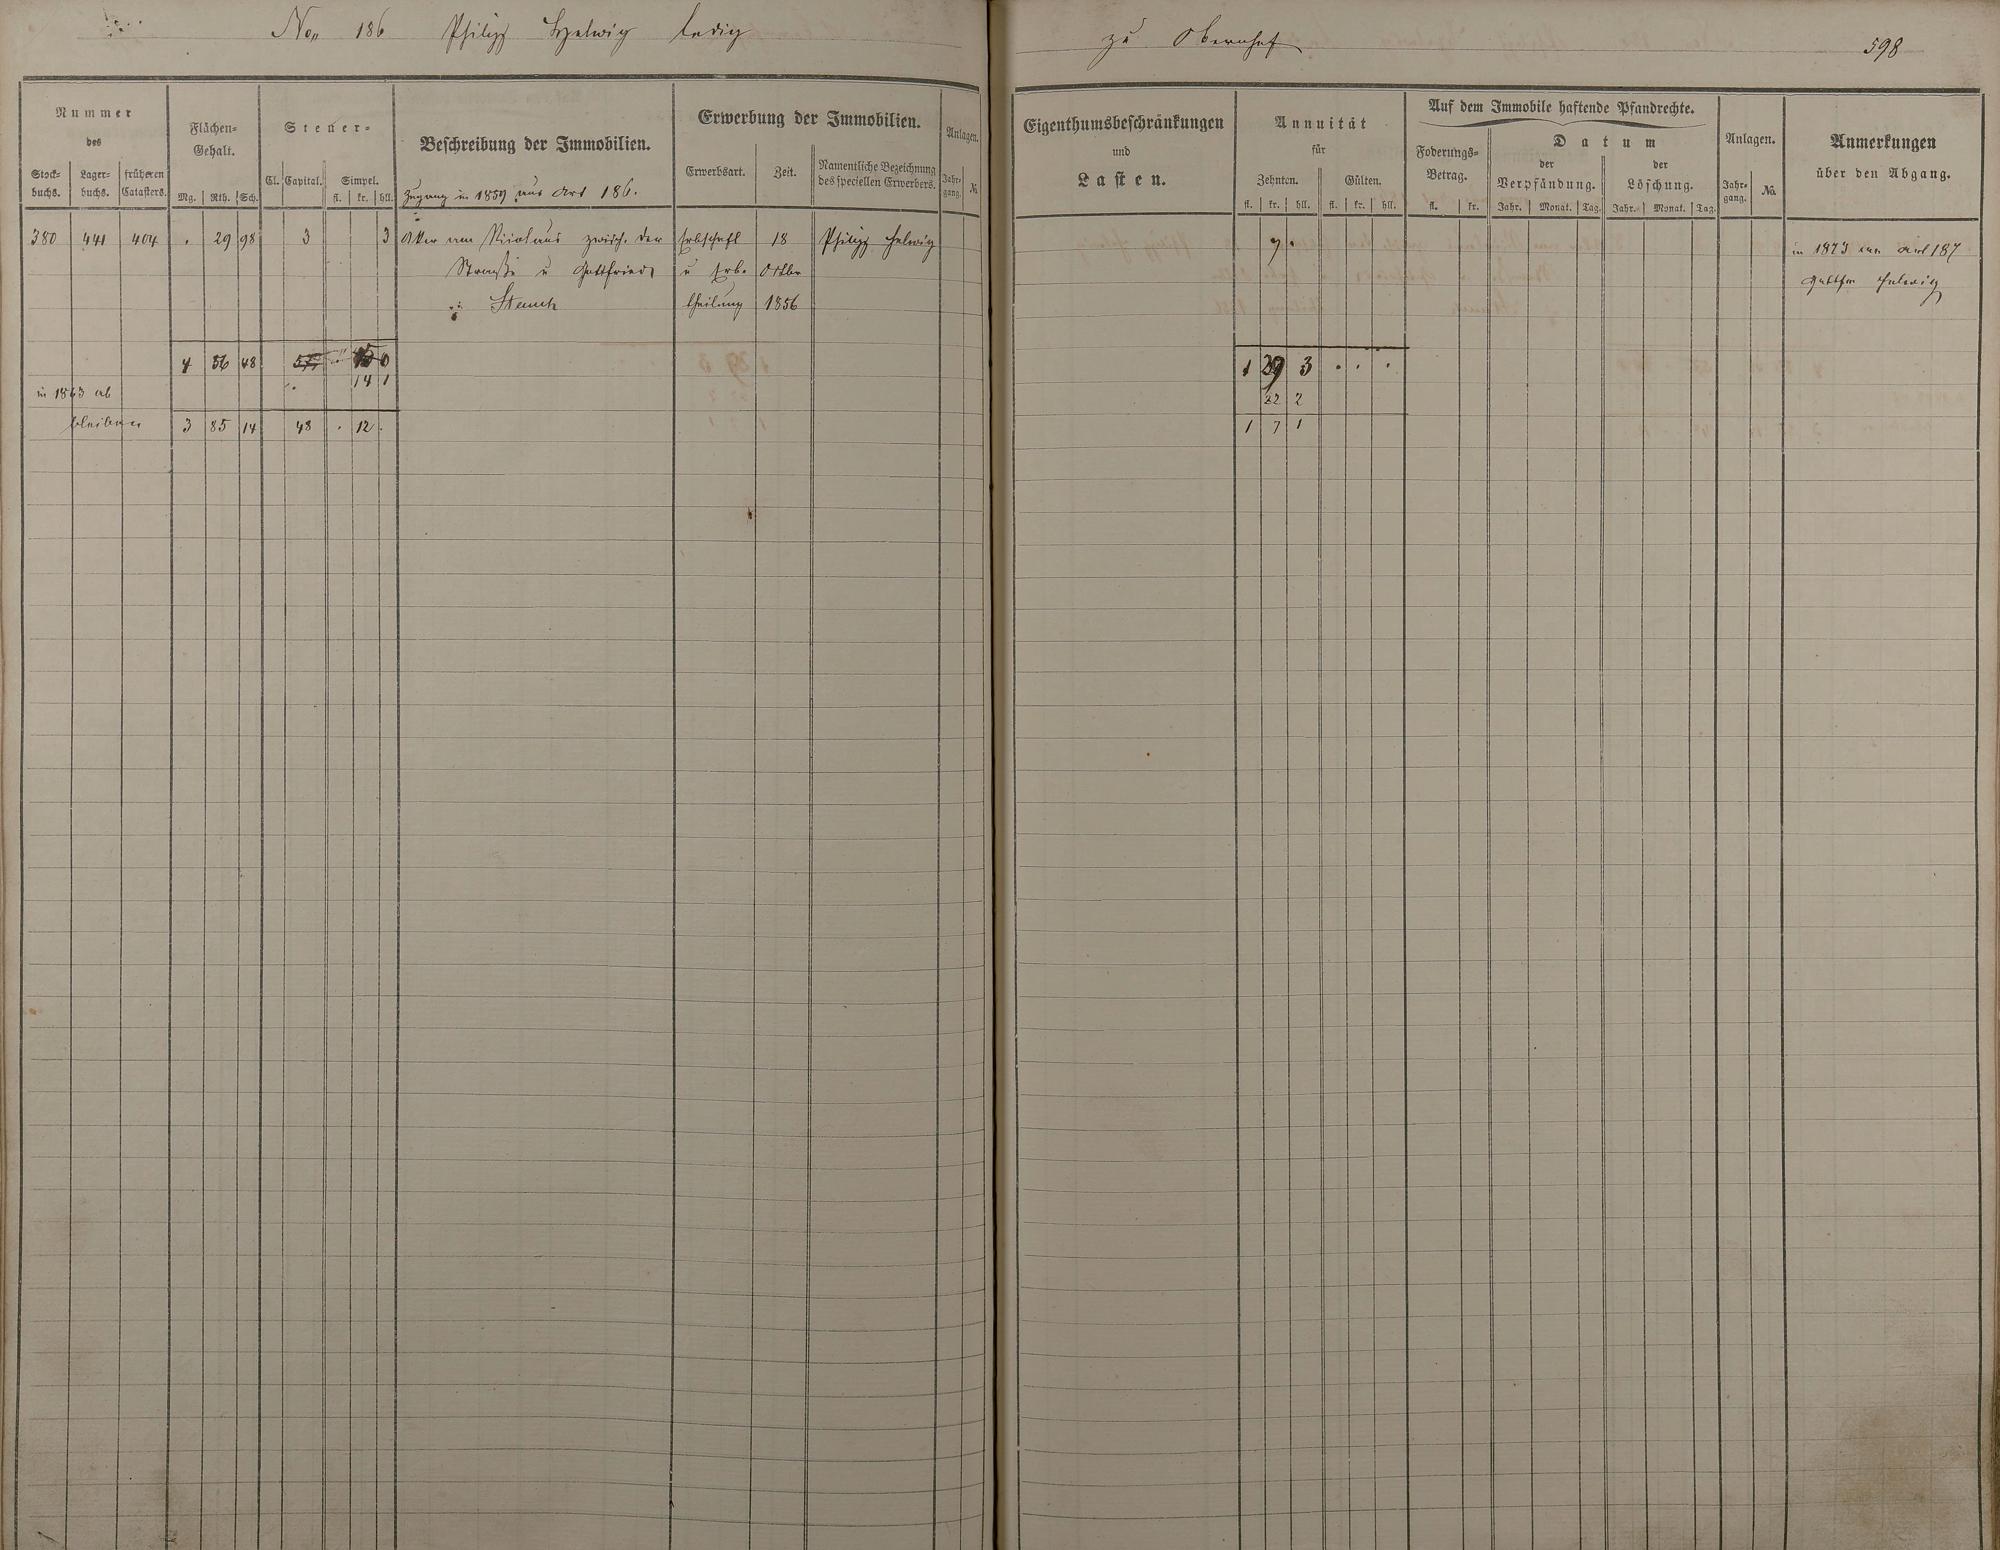 No. 186 Philipp Helwig ledig zu Obernhof 598
Nummer
des
Stock-buchs. Lager-buchs. früheren Catasters.
Flächen-Gehalt.
Mg. Rth. Sch.
Steuer-
Cl. Capital. Simpel.
fl. kr. hll.
Beschreibung der Immobilien.
Zugang in 1859 aus Art 186.
Erwerbung der Immobilien.
Erwerbsart. Zeit. Namentliche Bezeichnung des speciellen Erwerbers.
Anlagen.
Jahr-gang. No.
Eigenthumsbeschränkungen
und
Lasten.
Annuität
für
Zehnten. Gülten.
fl. kr. hll. fl. kr. hll.
Auf dem Immobile haftende Pfandrechte.
Foderungs-Betrag.
fl. kr.
Datum
der Verpfändung. der Löschung.
Jahr. Monat. Tag. Jahr. Monat. Tag.
Anlagen.
Jahr-gang. No.
Anmerkungen
über den Abgang.
380 441 404 . 29 98 3 3 Acker am zwisch. der Erbschaft 18 Philipp Helwig 7 . in 1873 an Art 187
Straße u Gottfried u Erb- Octbr Gottfr Helwig
Stauch theilung 1856
4 56 48 0 1 29 3 . . .
14 1
in 1863 ab 22 2
bleiben 3 85 14 48 . 12 . 1 7 1